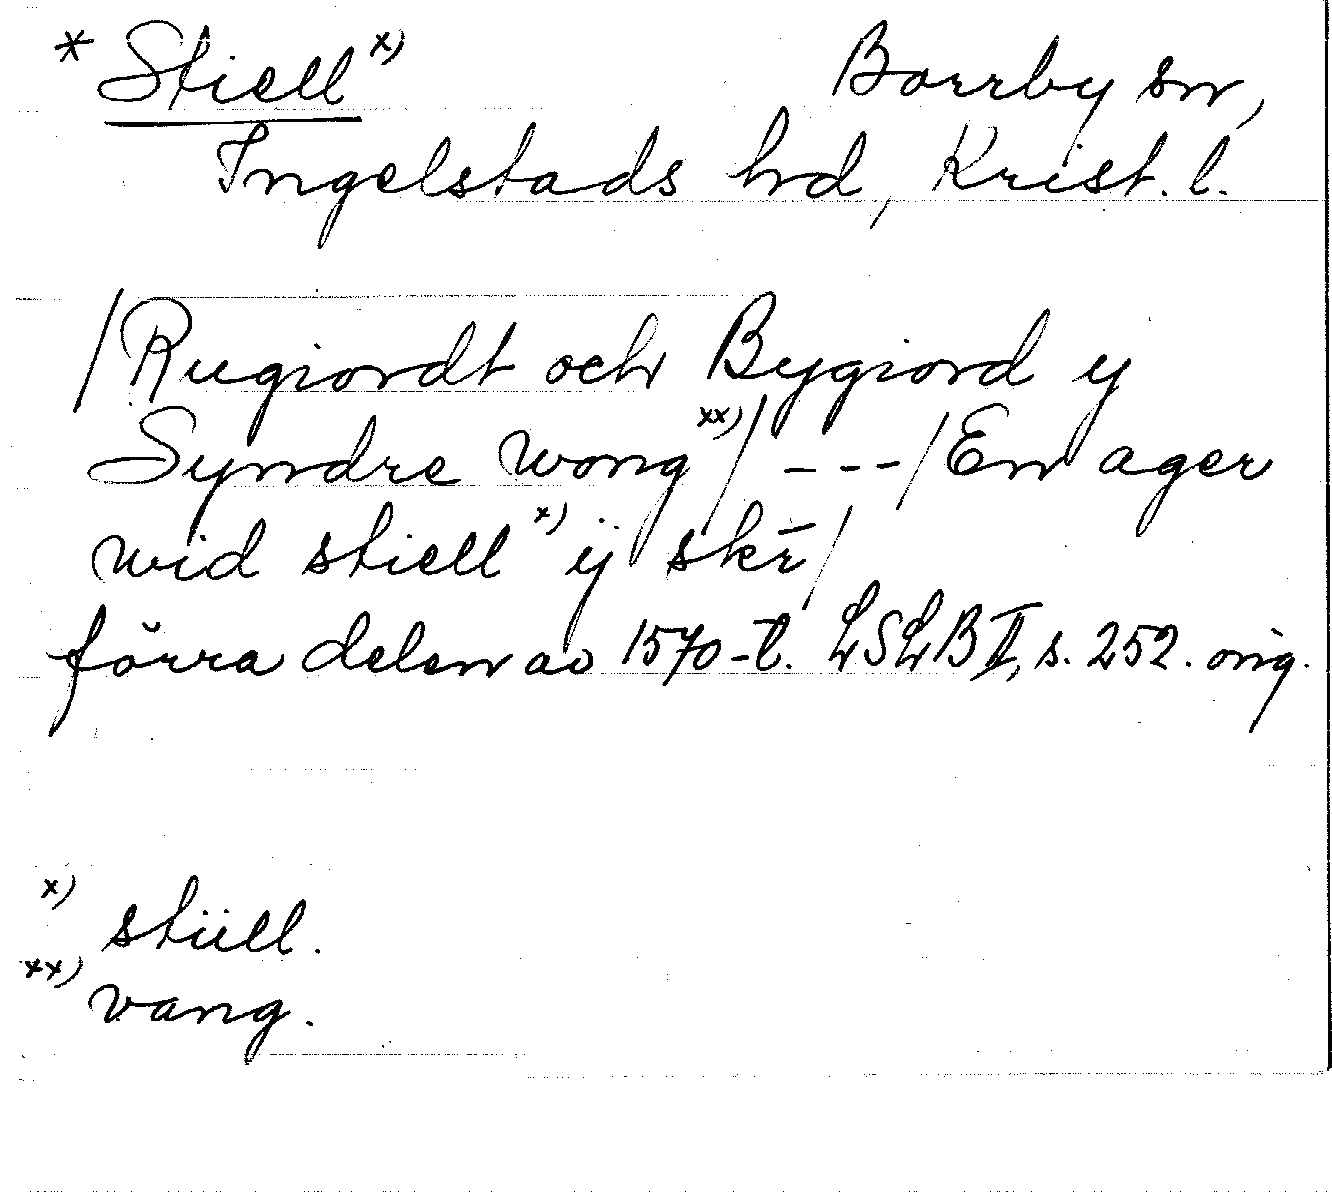 * Stiell x)          Borrby sn,
Ingelstads hd, Krist. l.
/Rugiordt och Bygiord y
Syndre wong xx)/ ---/En ager
wid stiell x) ÿ skr̄/
förra delen av 1570-t. LSLB II, s. 252. orig.
x) stiell.
xx) vang.